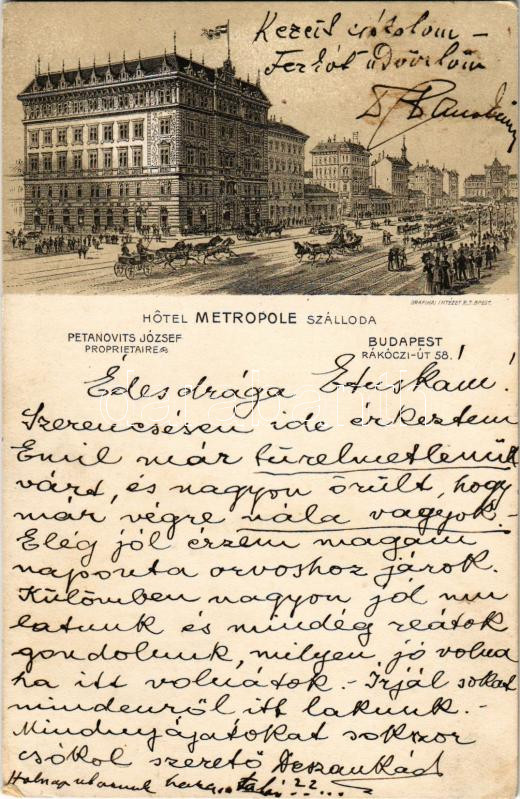 Kezeit csókolom –
Ferkót üdvözlöm
GRAFIKAI INTÉZET R.T. BPEST.
HÔTEL METROPOLE SZÁLLODA
PETANOVITS JÓZSEF
PROPRIETAIRE
BUDAPEST
RÁKÓCZI-ÚT 58.
Édesdrága Etuskám!
Szerencsésen ide érkeztem
Emil már türelmetlenül
várt, és nagyon örült, hogy
már végre nála vagyok. –
Elég jól érzem magam
naponta orvoshoz járok.
Külömben nagyon jól mu
latunk és mindég reátok
gondolunk, milyen jó volna
ha itt volnátok. – Írjál sokat
mindenről itt lakunk. –
Mindnyájatokat sokszor
csókol szerető
Holnap utazunk haza